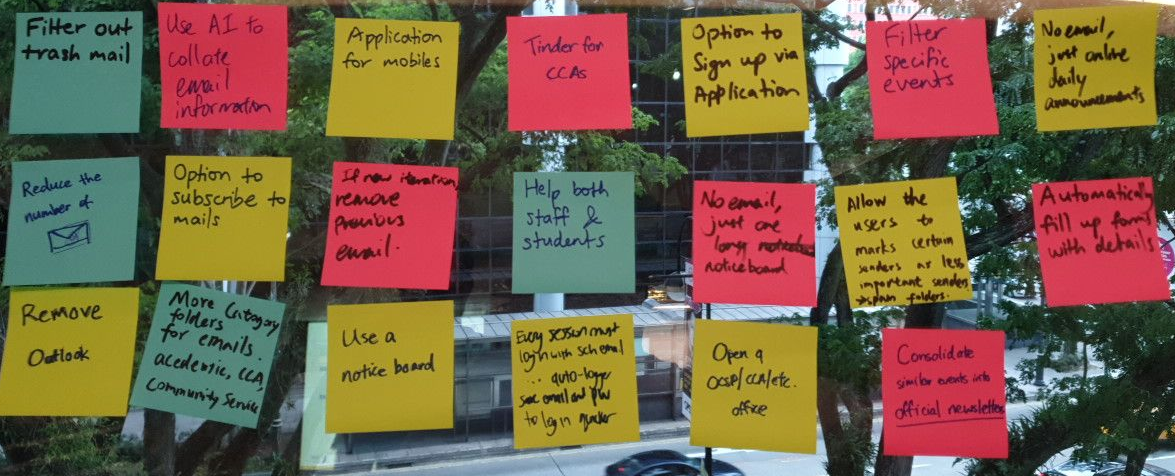 Filter out
trash mail
Use AI to
collate
email
information
Application
for mobiles
Tinder for
CCAs
Option to
Sign up via
Application
Filter
specific
events
No email,
just online
daily
announcements
Reduce the
number of
Option to
subscribe to
mails
If new iteration,
remove
previous
email.
Help both
staff &
students
No email,
just one
long
noticeboard
Allow the
users to
marks certain
senders as less
important senders
→ spam folders.
Automatically
fill up form
with details
Remove
Outlook
More Category
folders
for emails.
acedemic, CCA,
Community Service
Use a
notice board
Every session must
log in with sch email
... auto-logs
save email and pw
to log in quicker
Open a
OCSP/CCA/etc.
office
Consolidate
similar events into
official newsletter